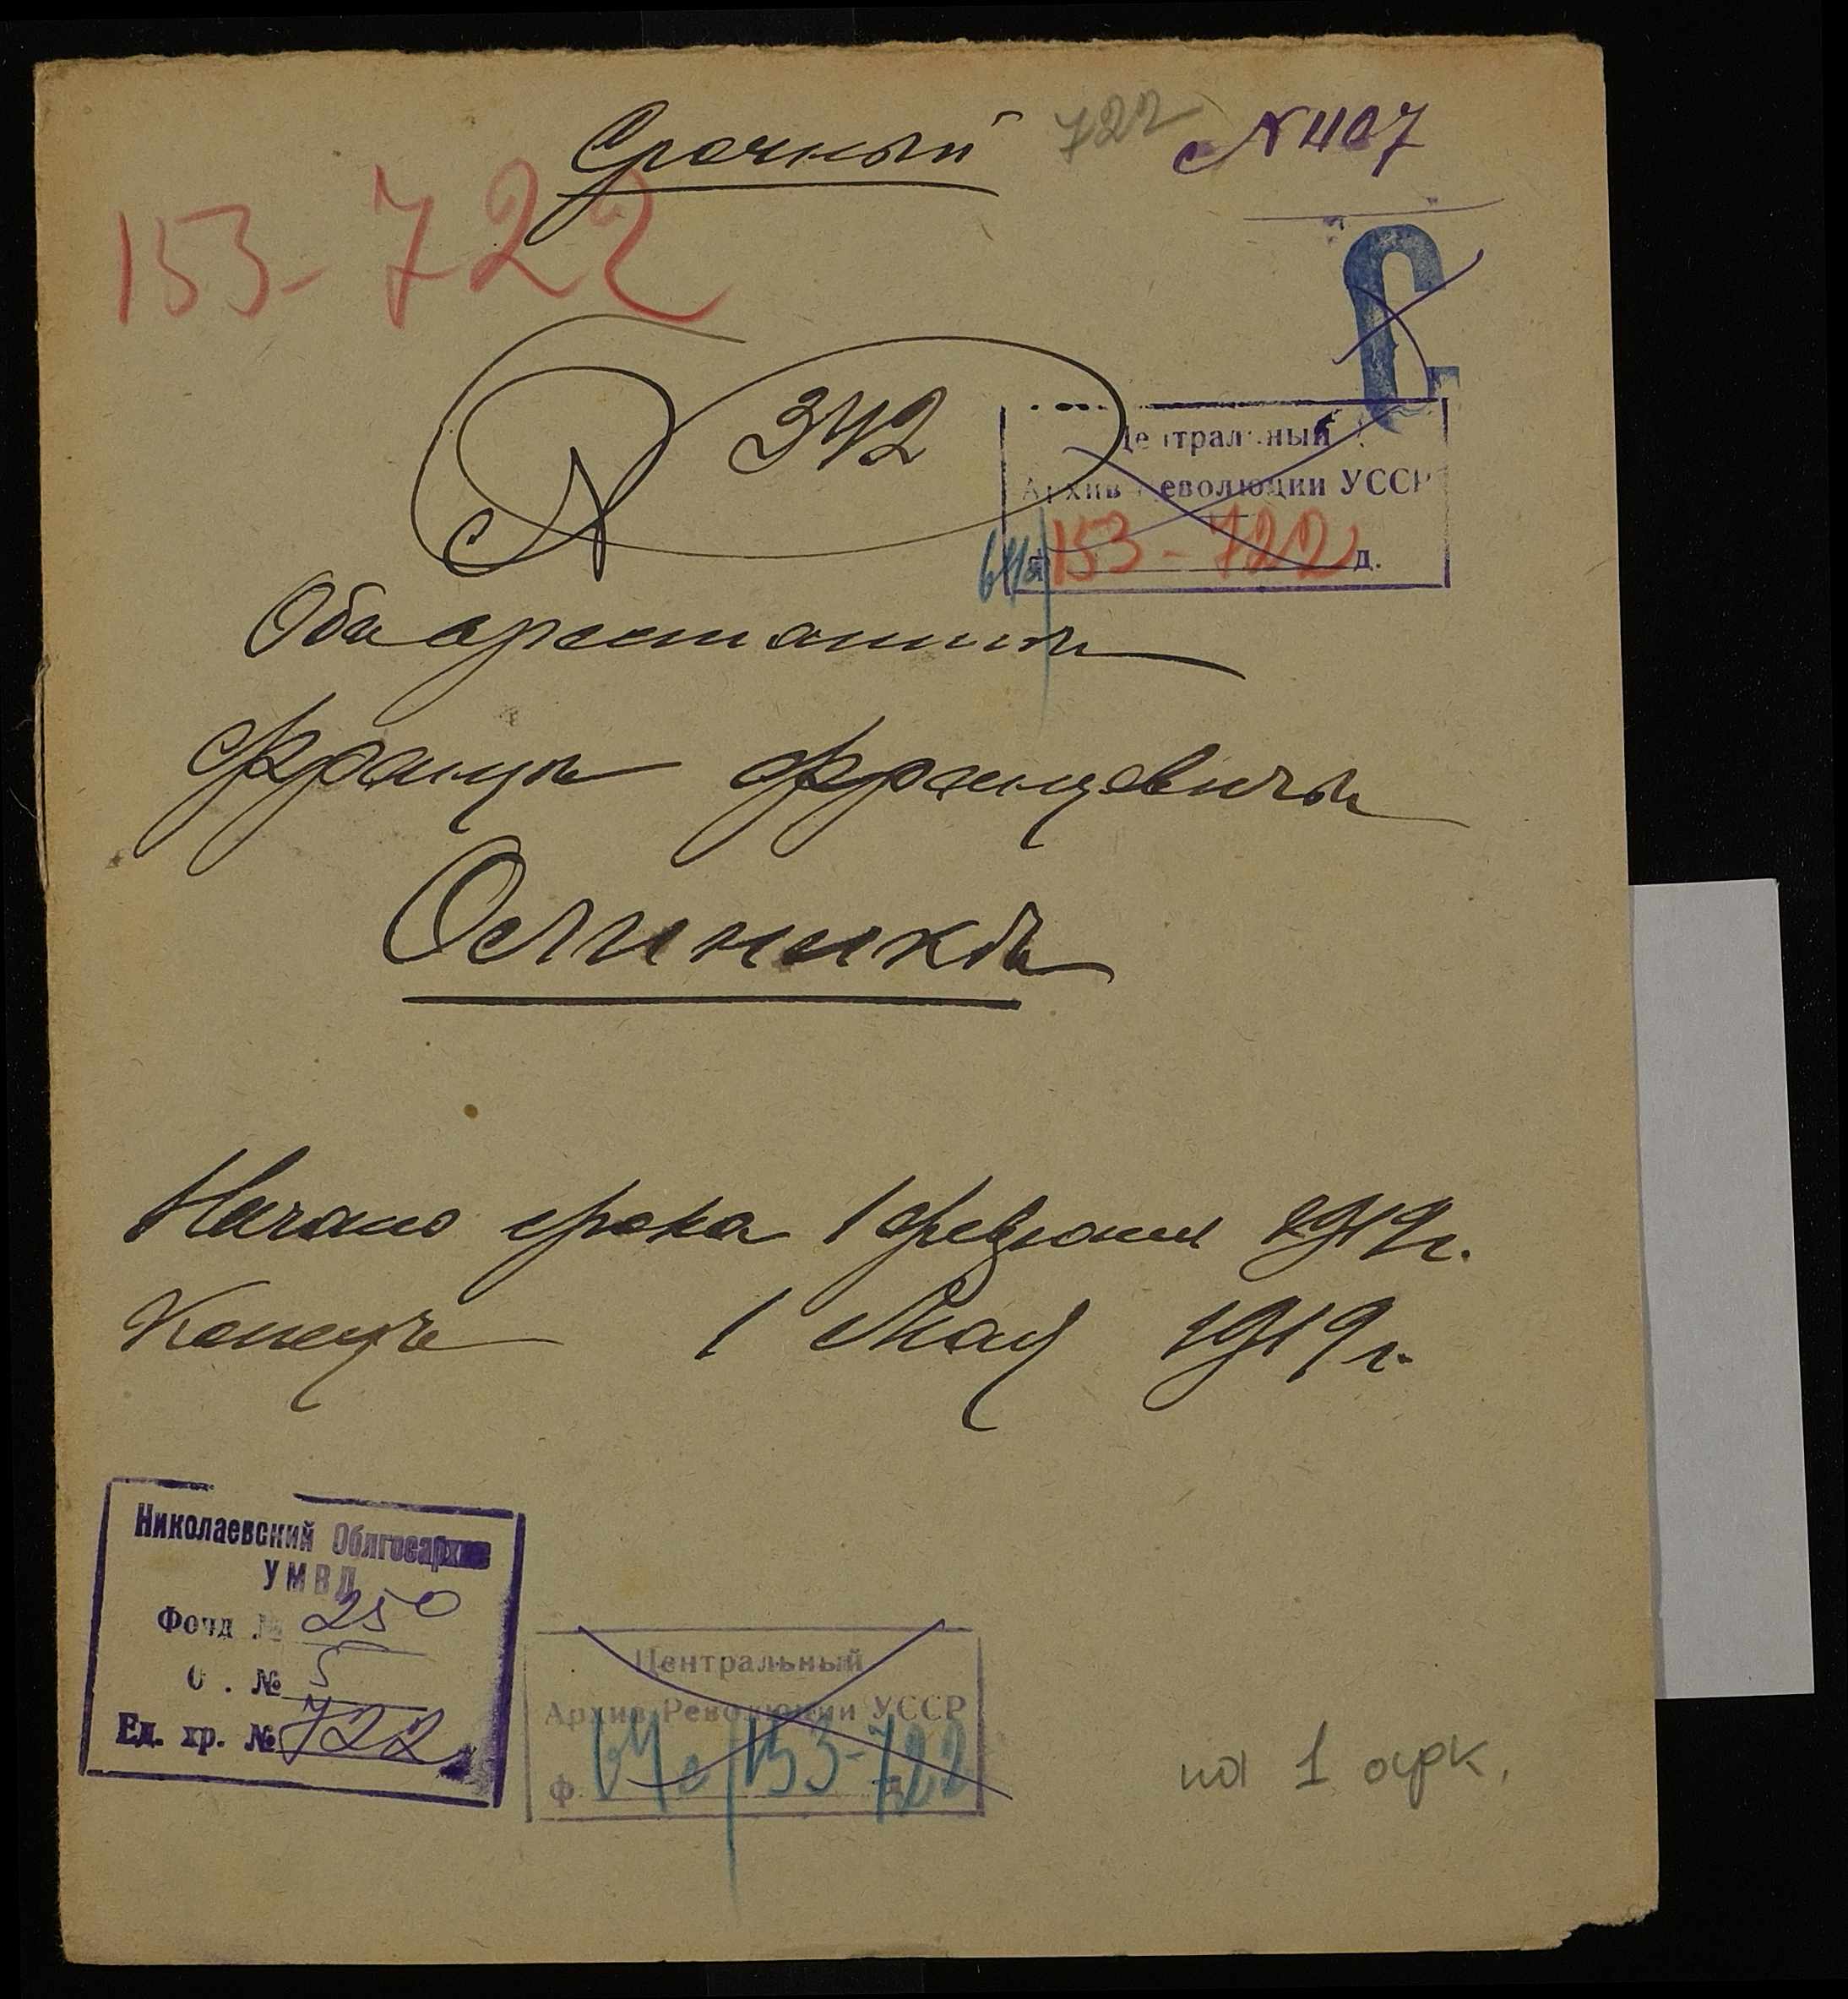 Срочный
722
№ 407
153-722
№ 342
Центральный
Архив Революции УССР
153-722 д.
Объ арестантѣ
Францъ Францевичъ
Олиникъ
Начало срока 1 февраля 1919 г.
Конецъ 1 Мая 1919 г.
Николаевский Облгосархив
УМВД
Фонд № 250
О . № 5
Ед. хр. № 722
Центральный
Архив Революции УССР
ф. 153-722
на 1 арк.